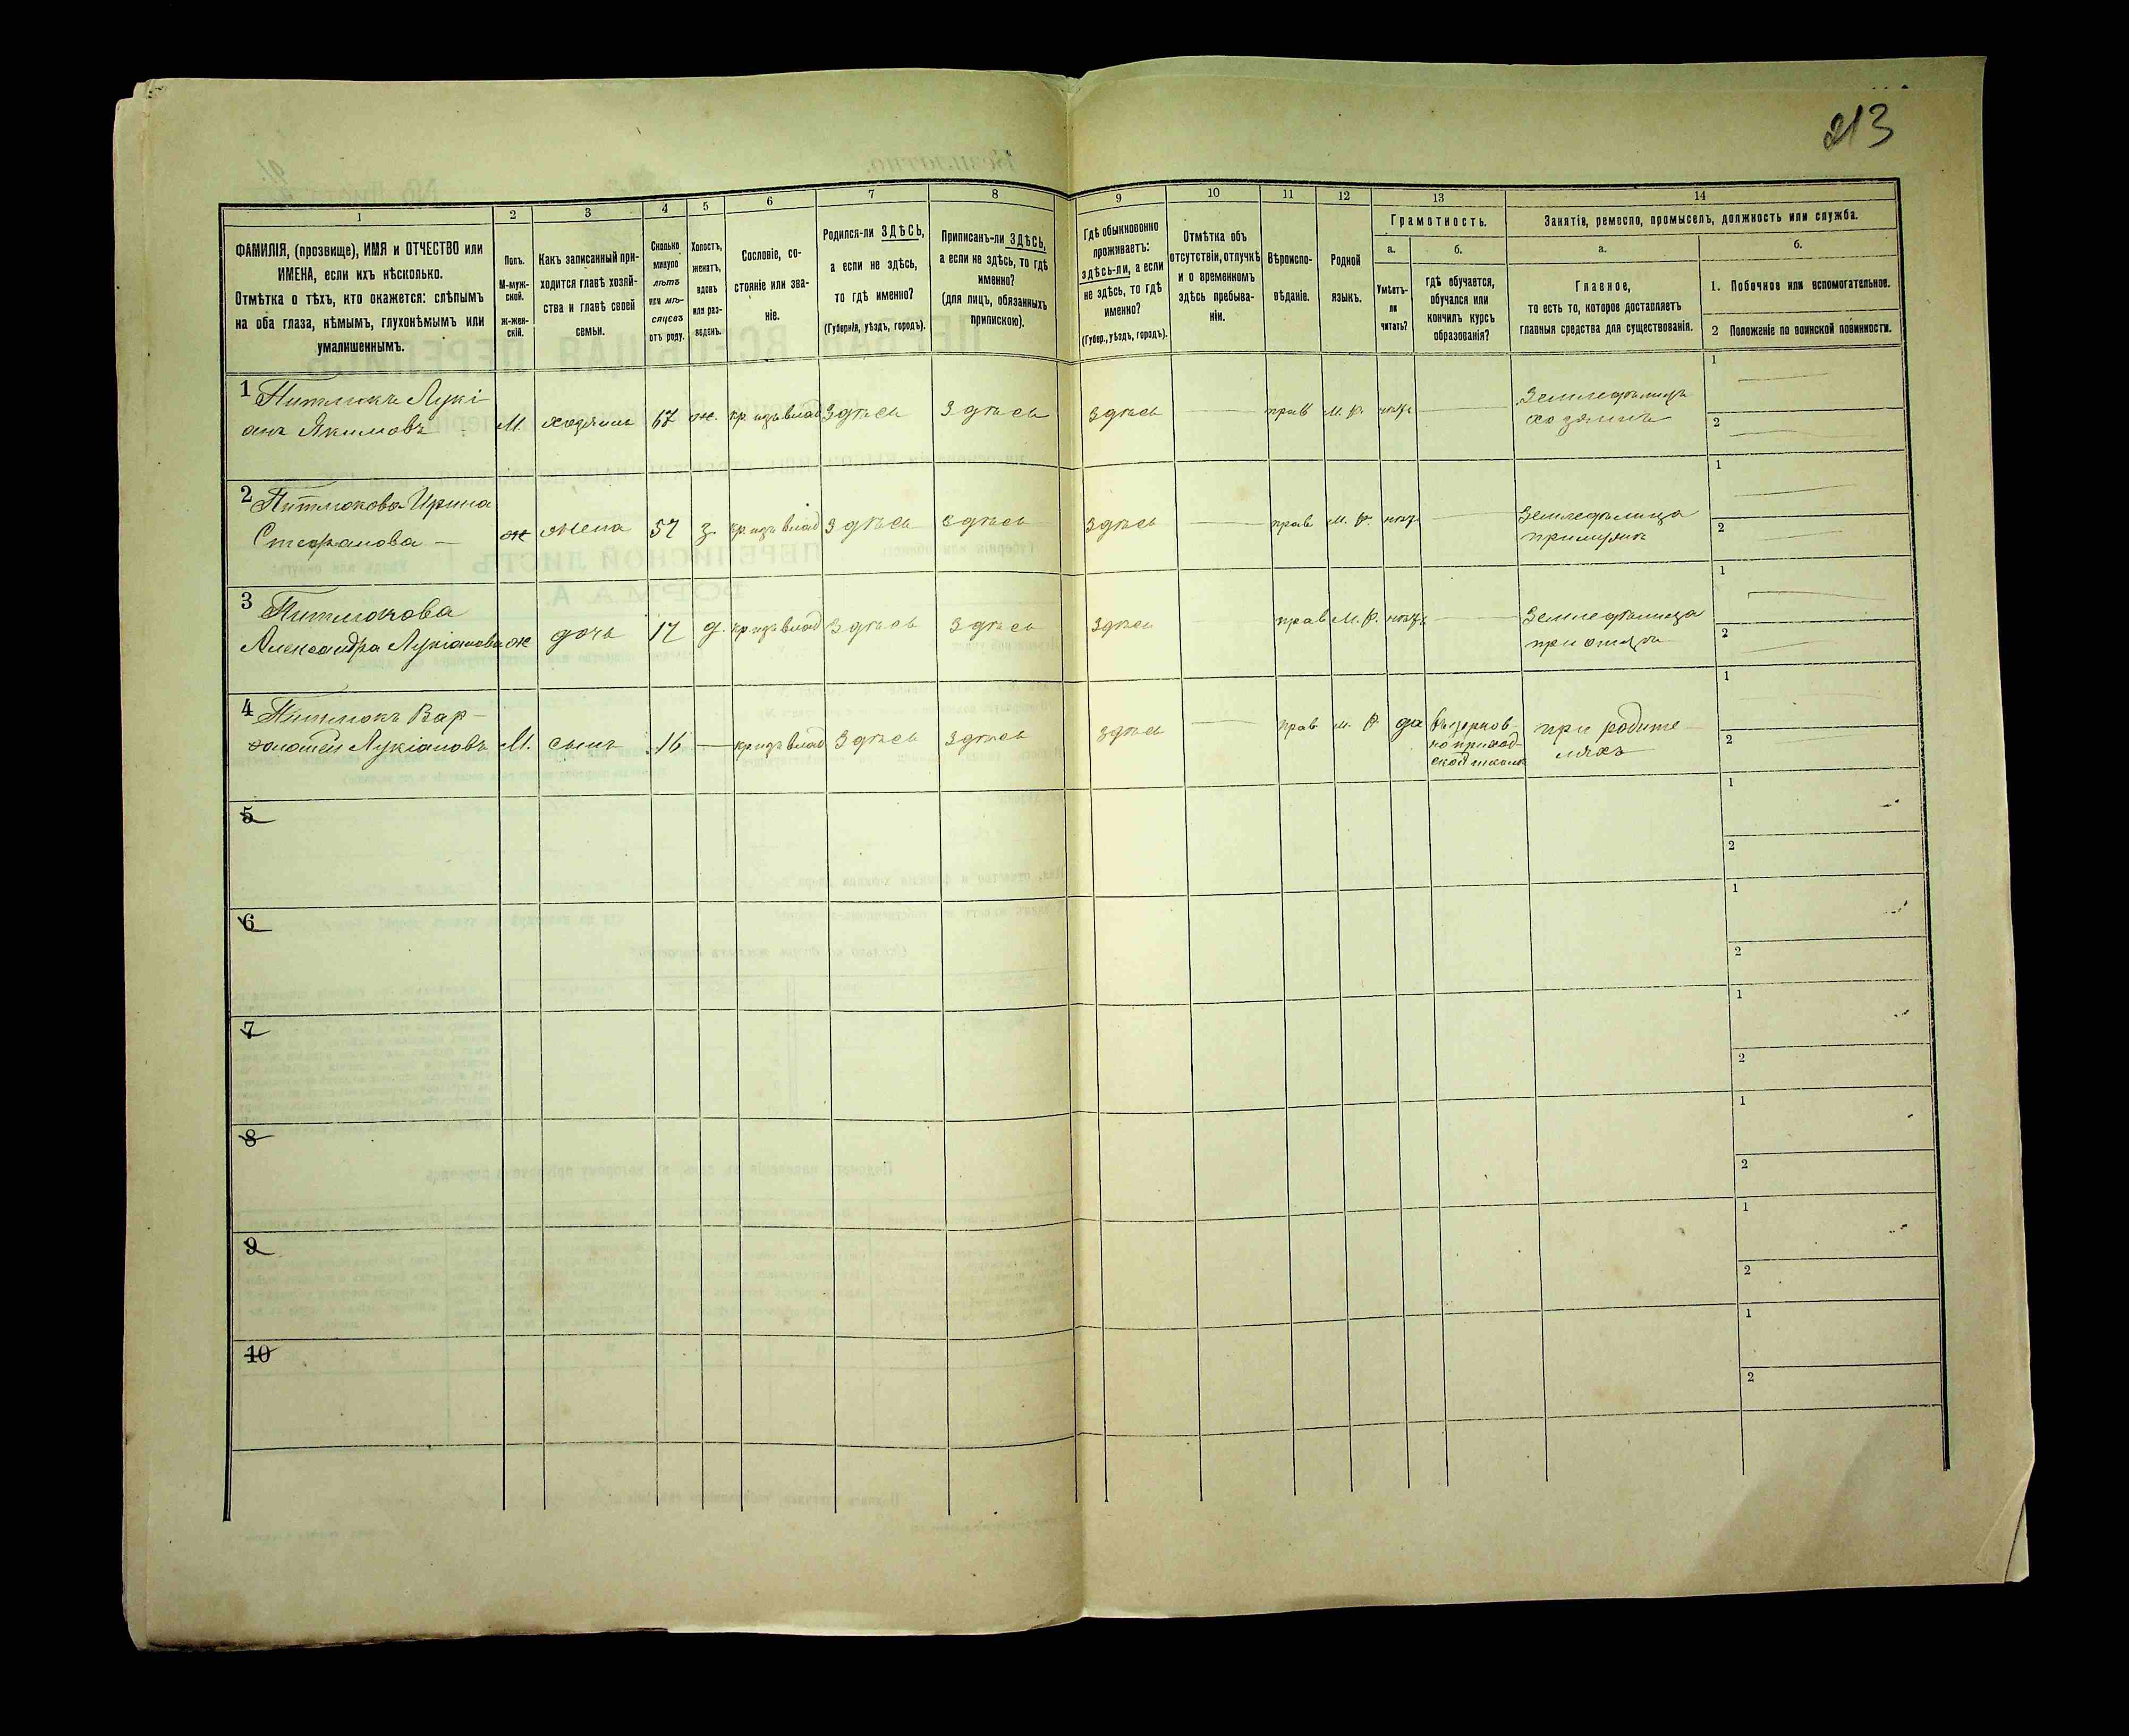 213
1
2
3
4
5
6
7
8
9
10
11
12
13
14
ФАМИЛІЯ, (прозвище), ИМЯ и ОТЧЕСТВО или
ИМЕНА, если ихъ нѣсколько.
Отмѣтка о тѣхъ, кто окажется: слѣпымъ
на оба глаза, нѣмымъ, глухонѣмымъ или
умалишеннымъ.
Полъ.
М-муж-
ской.
Ж-жен-
скій.
Какъ записанный при-
ходится главѣ хозяй-
ства и главѣ своей
семьи.
Сколько
минуло
лѣтъ
или мѣ-
сяцевъ
отъ роду.
Холостъ,
женатъ,
вдовъ
или раз-
веденъ.
Сословіе, со-
стояніе или зва-
ніе.
Родился-ли ЗДѢСЬ,
а если не здѣсь,
то гдѣ именно?
(Губернія, уѣздъ, городъ).
Приписанъ-ли ЗДѢСЬ,
а если не здѣсь, то гдѣ
именно?
(для лицъ, обязанныхъ
припискою).
Гдѣ обыкновенно
проживаетъ:
здѣсь-ли, а если
не здѣсь, то гдѣ
именно?
(Губер., уѣздъ, городъ).
Отмѣтка объ
отсутствіи, отлучкѣ
и о временномъ
здѣсь пребыва-
ніи.
Вѣроиспо-
вѣданіе.
Родной
языкъ.
Грамотность.
а.
Умѣетъ-
ли
читать?
б.
гдѣ обучается,
обучался или
кончилъ курсъ
образованія?
Занятія, ремесло, промыселъ, должность или служба.
а.
Главное,
то есть то, которое доставляетъ
главныя средства для существованія.
б.
1. Побочное или вспомогательное.
2 Положеніе по воинской повинности.
1 Питлюкъ Лукі-
анъ Якимовъ
М.
хозяинъ
67
ж.
кр. изъ влад
Здѣсь
Здѣсь
Здѣсь
прав
м. р.
нѣтъ
Земледѣлецъ
хозяинъ
1
2
2 Питлюкова Ирина
Стефанова —
ж
жена
57
з.
кр. изъ влад
Здѣсь
Здѣсь
Здѣсь
прав
м. р.
нѣтъ
Земледѣлица
при мужѣ
1
2
3 Питлюкова
Александра Лукіанова
ж
дочь
17
д.
кр изъ влад
Здѣсь
Здѣсь
Здѣсь
прав
м. р.
нѣтъ
Земледѣлица
при отцѣ
1
2
4 Питлюкъ Вар-
ѳоломей Лукіановъ
М.
сынъ
16
—
кр изъ влад
Здѣсь
Здѣсь
Здѣсь
прав
м. р
да
въ церков-
но приход-
ской школѣ
при родите-
ляхъ
1
2
5
1
2
6
1
2
7
1
2
8
1
2
9
1
2
10
1
2